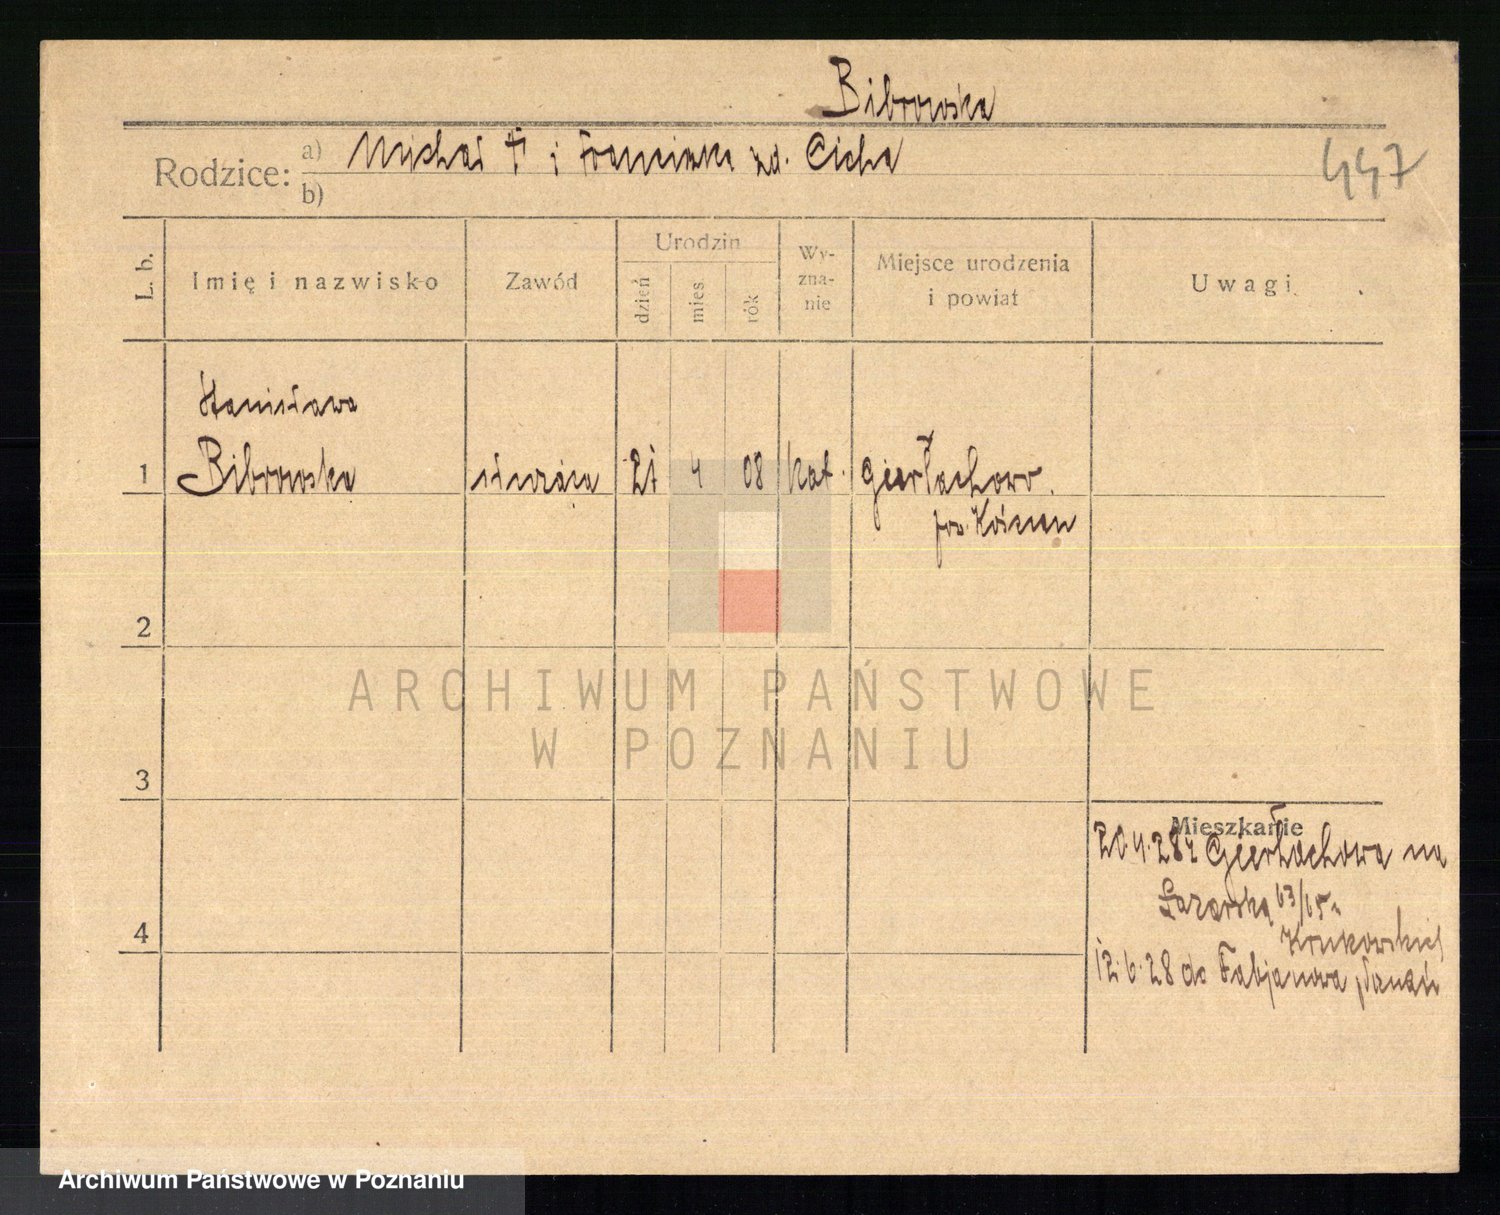 Bibrowska
Rodzice: a) Michał † i Franciszka zd. Cicha
b)
447
L. b.
Imię i nazwisko
Zawód
Urodzin
dzień
mies
rok
Wy-
zna-
nie
Miejsce urodzenia
i powiat
Uwagi
Stanisława
1 Bibrowska służąca 27 4 08 kat. Gierłachowo
pow. Kościan
2
3
4
Mieszkanie
20.4.28 z Gierłachowa na
Łazarską 63/65 u
Krukowskiej
12.6.28 do Fabjanowa
ARCHIWUM PAŃSTWOWE
W POZNANIU
Archiwum Państwowe w Poznaniu